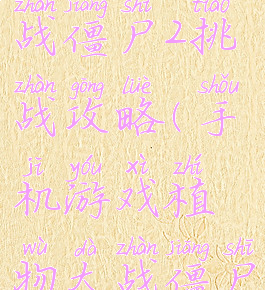 zhàn jiāng shī tiǎo
战僵尸2挑
zhàn gōng lüè shǒu
战攻略(手
jī yóu xì zhí
机游戏植
wù dà zhàn jiāng shī
物大战僵尸